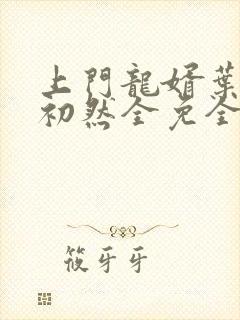 上門龍婿葉
初然全免全
筱牙牙